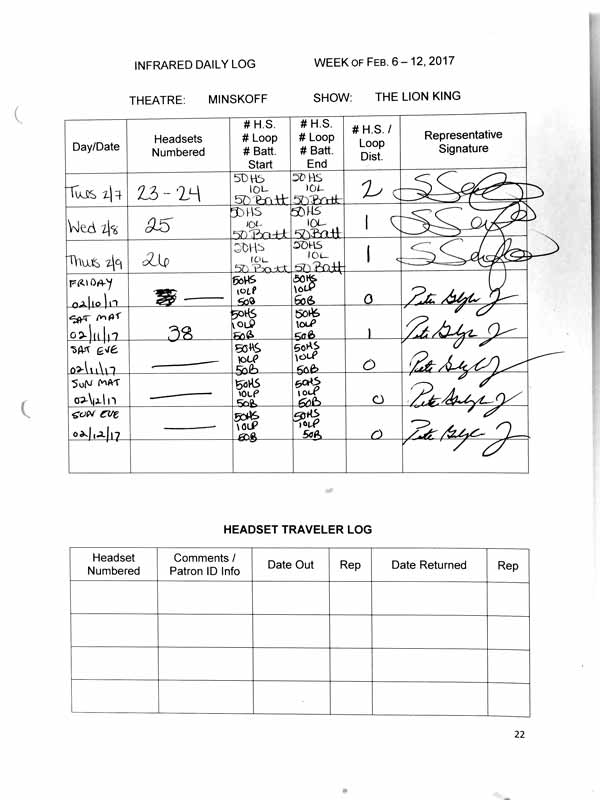 INFRARED DAILY LOG WEEK OF FEB. 6 – 12, 2017
THEATRE: MINSKOFF SHOW: THE LION KING
Day/Date Headsets Numbered # H.S. # Loop # Batt. Start # H.S. # Loop # Batt. End # H.S. / Loop Dist. Representative Signature
Tues 2/7 23 - 24 50HS 10L 50 Batt 50HS 10L 50 Batt 2
Wed 2/8 25 50HS 10L 50 Batt 50HS 10L 50 Batt 1
Thurs 2/9 26 50HS 10L 50 Batt 50HS 10L 50 Batt 1
FRIDAY 02/10/17 — 50HS 10LP 50B 50HS 10LP 50B 0
SAT MAT 02/11/17 38 50HS 10LP 50B 50HS 10LP 50B 1
SAT EVE 02/11/17 — 50HS 10LP 50B 50HS 10LP 50B 0
SUN MAT 02/12/17 — 50HS 10LP 50B 50HS 10LP 50B 0
SUN EVE 02/12/17 — 50HS 10LP 50B 50HS 10LP 50B 0
HEADSET TRAVELER LOG
Headset Numbered Comments / Patron ID Info Date Out Rep Date Returned Rep
22